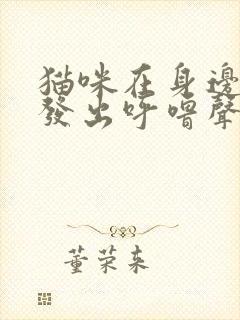 猫咪在身邊
發出呼嚕聲
董荣来